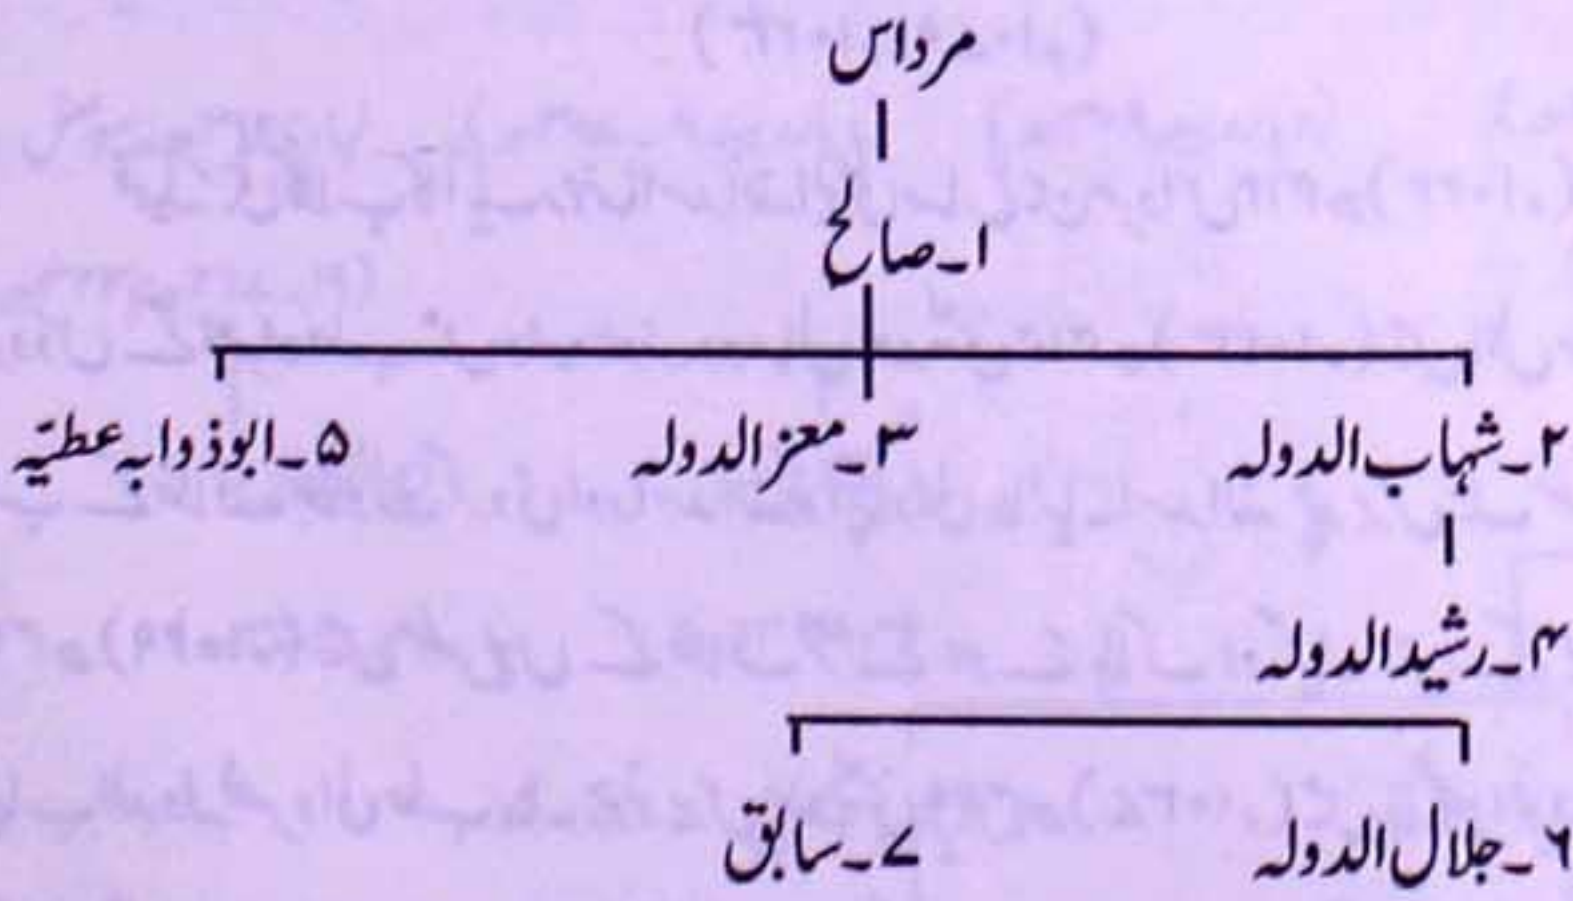 مرداس
۱۔صالح
۲۔شہاب الدولہ ۳۔معز الدولہ ۵۔ابوذوابہ عطیّہ
۴۔رشید الدولہ
۶۔جلال الدولہ ۷۔سابق